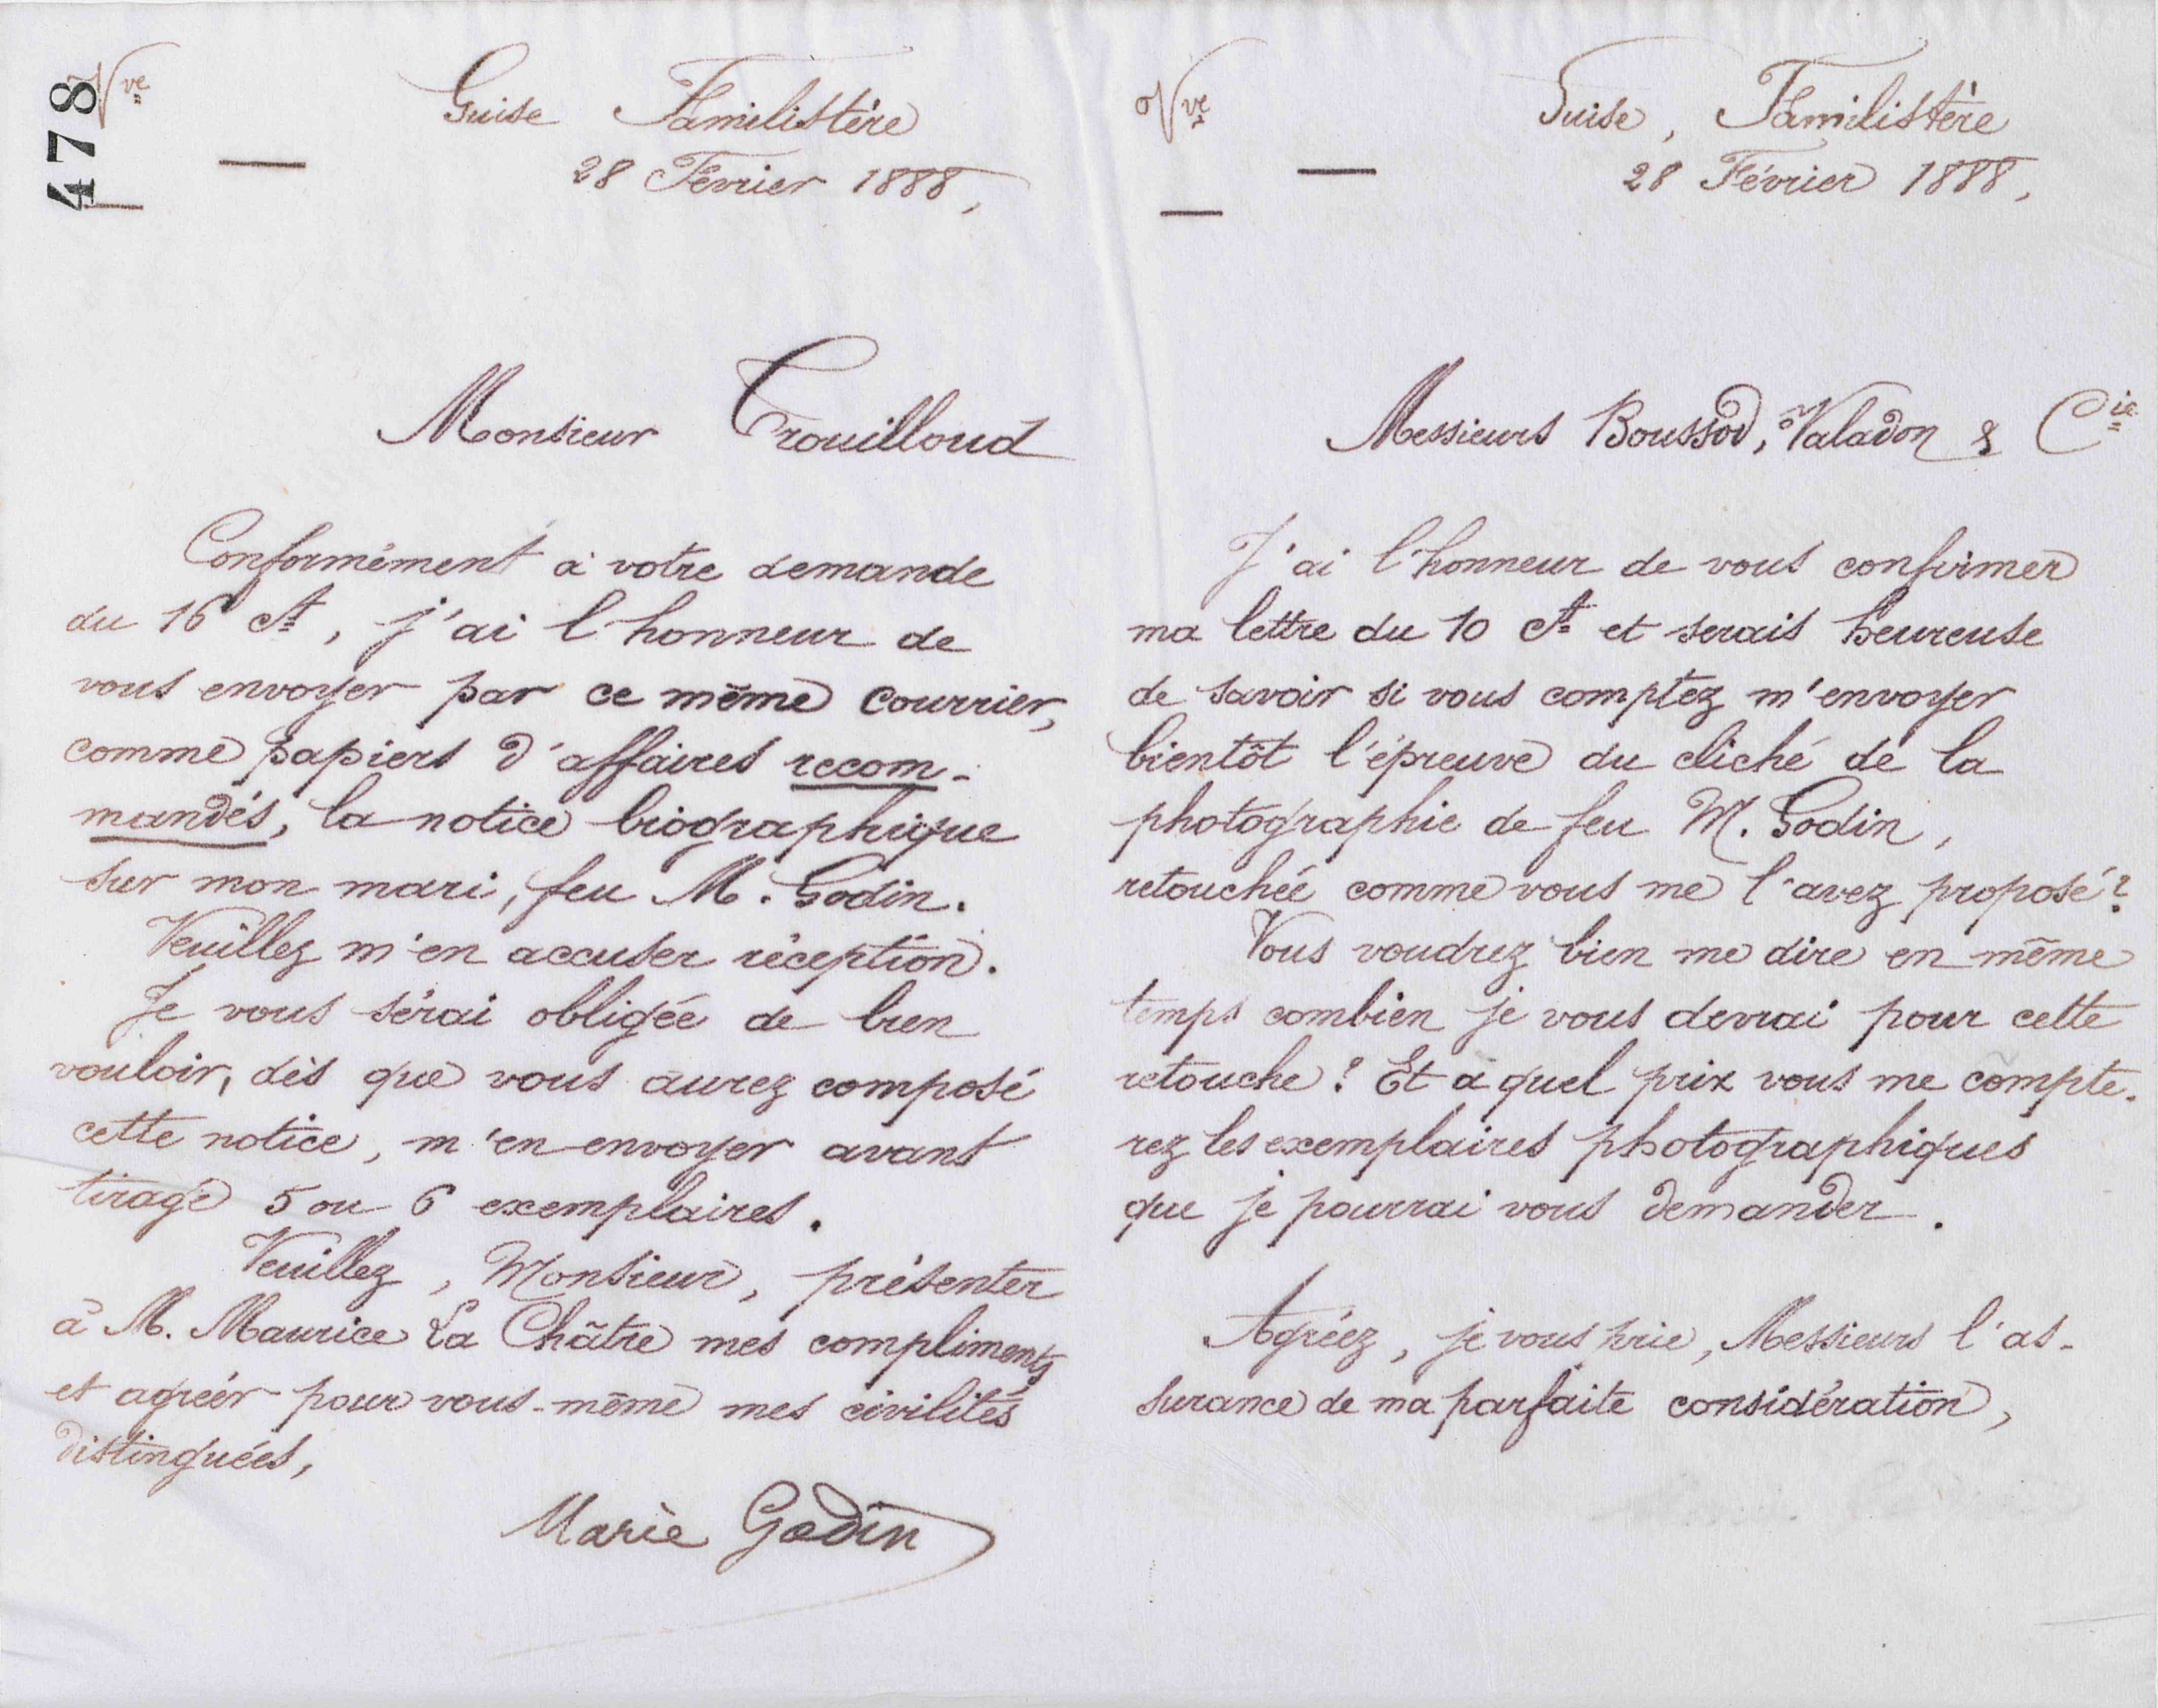 478
Vve
Guise Familistère
28 Février 1888,
Monsieur Trouilloud
Conformément à votre demande
du 16 ct, j'ai l'honneur de
vous envoyer par ce même courrier,
comme papiers d'affaires recom-
mandés, la notice biographique
sur mon mari, feu M. Godin.
Veuillez m'en accuser réception.
Je vous serai obligée de bien
vouloir, dès que vous aurez composé
cette notice, m'en envoyer avant
tirage 5 ou 6 exemplaires.
Veuillez, Monsieur, présenter
à M. Maurice La Châtre mes compliments
et agréér pour vous-même mes civilités
distinguées,
Marie Godin
Vve
Guise, Familistère
28 Février 1888,
Messieurs Boussod, Valadon & Cie
J'ai l'honneur de vous confirmer
ma lettre du 10 ct et serais heureuse
de savoir si vous comptez m'envoyer
bientôt l'épreuve du cliché de la
photographie de feu M. Godin,
retouchée comme vous me l'avez proposé?
Vous voudrez bien me dire en même
temps combien je vous devrai pour cette
retouche? Et à quel prix vous me compte-
rez les exemplaires photographiques
que je pourrai vous demander.
Agréez, je vous prie, Messieurs l'as-
surance de ma parfaite considération,